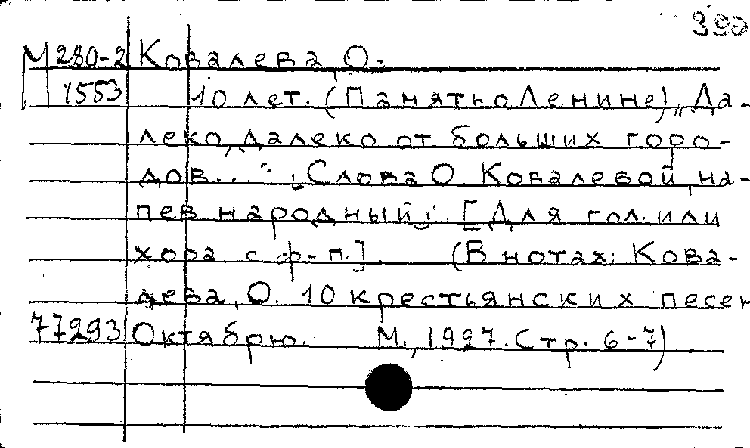 390
М 280-2 Ковалева, О.
1553 10 лет. (Память о Ленине) „Да-
леко, далеко от больших горо-
дов..." [Слова О. Ковалевой, на-
пев народный]. [Для гол. или
хора с ф-п.]. (В нотах: Кова-
лева, О. 10 крестьянских песен
77293 Октябрю. М., 1927. Стр. 6-7)